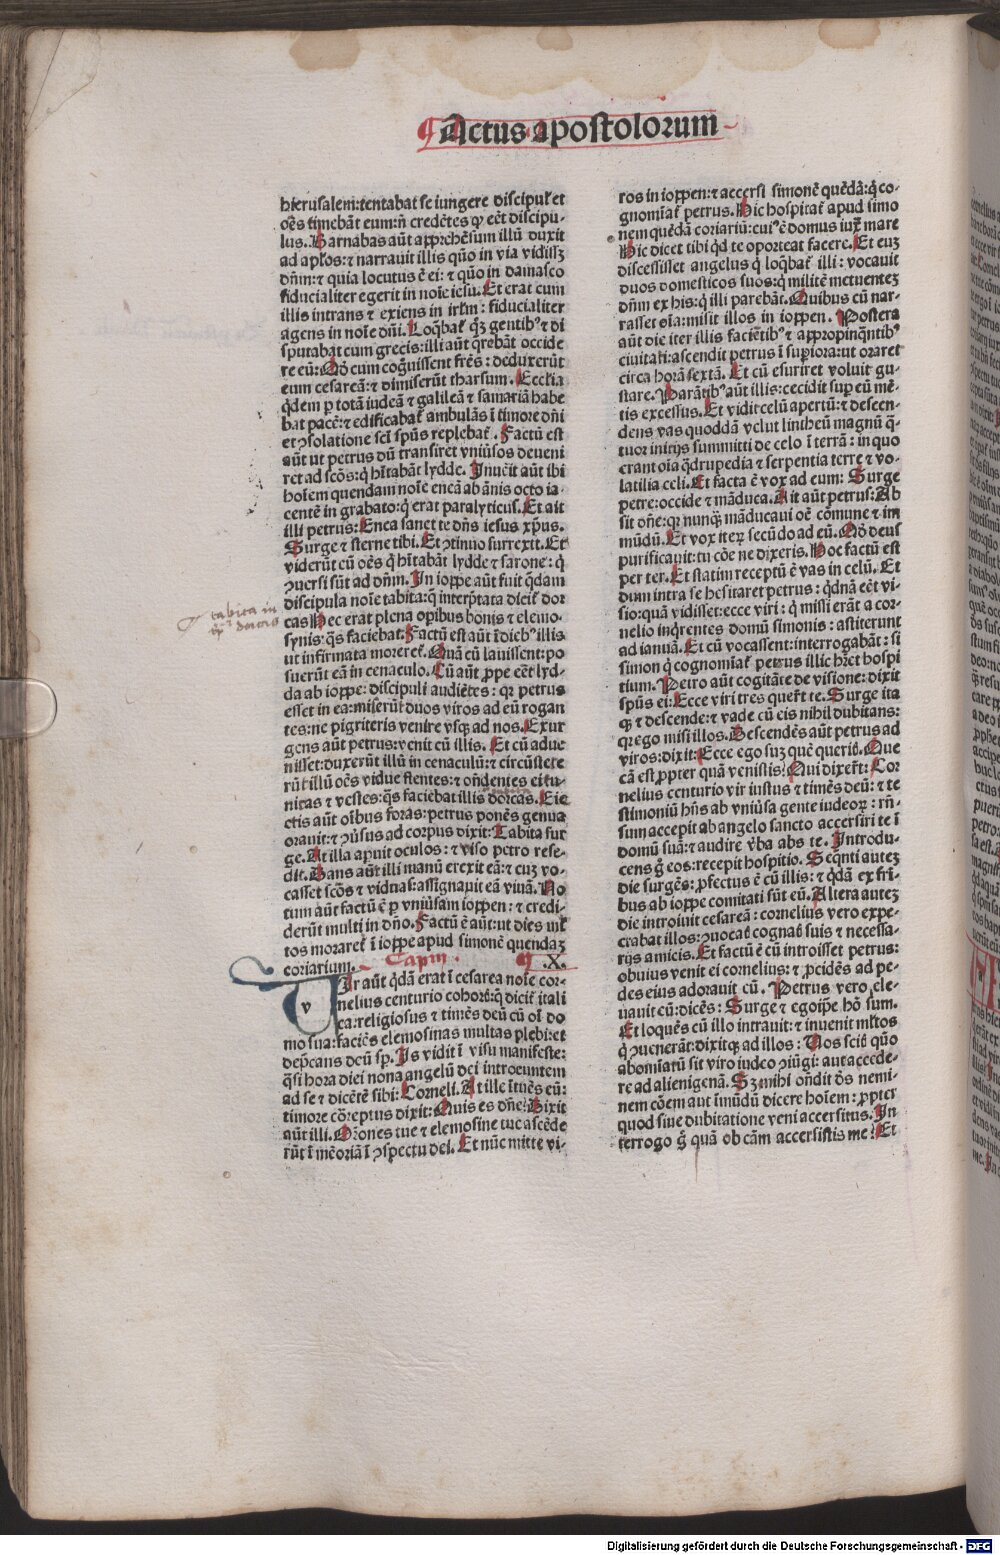 Actus apostolorum
hierusalem:tentabat se iungere discipul̕ et
oēs timebāt eum:n̄ credētes qꝫ eēt discipu-
lus. Barnabas aūt appr̄ehēsum illū duxit
ad apl̕os: ⁊ narrauit illis quō in via vidissꝫ
dn̄m: ⁊ quia locutus ē ei: ⁊ quō in damasco
fiducialiter egerit in noīe iesu. Et erat cum
illis intrans ⁊ exiens in irl̕m: fiducialiter
agens in noīe dn̄i. Loq̄bat̕ qꝫ gentibꝰ ⁊ di
sputabat cum grecis: illi aūt q̄rebāt occide
re eū: Qō cum coḡuissent fr̄es: deduxerūt
eum cesareā: ⁊ dimiserūt tharsum. Eccl̕ia
q̇dem ꝑ totā iudeā ⁊ galileā ⁊ samariā habe
bat pacē: ⁊ edificabat̕ ambulās ī timore dn̄i
et ꝯsolatione sc̄i sp̄us replebat̕. Factū est
aūt ut petrus dū transiret vniūsos deueni
ret ad sc̄os: q̇ hītabāt lydde. Inuēit aūt ibi
hoīem quendam noīe eneā ab ānis octo ia-
centē in grabato: q̇ erat paralyticus. Et ait
illi petrus: Enea sanet te dn̄s iesus xp̄us.
Surge ⁊ sterne tibi. Et ꝯtinuo surrexit. Et
viderūt cū oēs q̇ hītabāt lydde ⁊ sarone: q̇
ꝯuersi sūt ad dn̄m. In ioppe aūt fuit q̄dam
discipula noīe tabita: q̄ interp̄tata dicit̕ dor
cas Hec erat plena oꝑibus bonis ⁊ elemo-
synis: q̄s faciebat. Factū est aūt ī diebꝰ illis
ut infirmata moreret̕. Quā cū lauissent: po
suerūt eā in cenaculo. Cū aūt ꝓpe eēt lyd-
da ab ioppe: discipuli audiētes: qꝛ petrus
esset in ea: miserūt duos viros ad eū rogan
tes: ne pigriteris venire vsqꝫ ad nos. Exur
gens aūt petrus: venit cū illis. Et cū adue
nisset: duxerūt illū in cenaculū: ⁊ circūstete
rūt illū oēs vidue flentes: ⁊ on̄dentes ei tu-
nicas ⁊ vestes: q̄s faciebat illis dorcas. Eie
ctis aūt oībus foras: petrus ponēs genua
orauit: ⁊ ꝯūsus ad corpus dixit: Tabita sur
ge. At illa aꝑuit oculos: ⁊ viso petro rese-
dit. Dans aūt illi manū erexit eā: ⁊ cuꝫ vo-
casset sc̄os ⁊ viduas: assignauit eā viuā. No
tum aūt factū ē ꝑ vniūsam ioppen: ⁊ credi-
derūt multi in dn̄o. Factū ē aūt: ut dies ml̕
tos moraret̕ ī ioppe apud simonē quendaꝫ
coriarium.
tabita in
dorcas
Capm .X.
v
Ir aūt q̇dā erat ī cesarea noīe cor-
nelius centurio cohort̕: q̄ dicit̕ itali
ca: religiosus ⁊ timēs deū cū oī do
mo sua: faciēs elemosinas multas plebi: et
dep̄cans deū sp̄. Is vidit ī visu manifeste:
q̄si hora diei nona angelū dei introeuntem
ad se ⁊ dicētē sibi: Corneli. At ille ītuēs eū:
timore cōreptus dixit: Quis es dn̄e? Dixit
aūt illi. Orones tue ⁊ elemosine tue ascēde
rūt ī mēoriā ī ꝯspectu dei. Et nūc mitte vi-
ros in ioppen: ⁊ accersi simonē quēdā: q̇ co-
gnomīat̕ petrus. Hic hospitat̕ apud simo
nem quēdā coriariū: cuiꝰ ē domus iux̄ mare
Hic dicet tibi qd̄ te oporteat facere. Et cuꝫ
discessisset angelus q̇ loq̄bat̕ illi: vocauit
duos domesticos suos: q̇ militē metuenteꝫ
dn̄m ex his: q̇ illi parebāt. Quibus cū nar-
rasset oīa: misit illos in ioppen. Postera
aūt die iter illis faciētibꝰ ⁊ appropinq̄ntibꝰ
ciuitati: ascendit petrus ī suꝑiora: ut oraret
circa horā sextā. Et cū esuriret voluit gu-
stare. Parātibꝰ aūt illis: cecidit suꝑ eū mē-
tis excessus. Et vidit celū apertū: ⁊ descen-
dens vas quoddā velut lintheū magnū q̄-
tuor initijs summitti de celo ī terrā: in quo
erant oīa q̄drupedia ⁊ serpentia terre ⁊ vo-
latilia celi. Et facta ē vox ad eum: Surge
petre: occide ⁊ māduca. Ait aūt petrus: Ab
sit dn̄e: qꝛ nunq̄ māducaui oē cōmune ⁊ im
mūdū. Et vox iteꝝ secūdo ad eū. Qō deus
purificauit: tu cōe ne dixeris. Hoc factū est
per ter. Et statim receptū ē vas in celū. Et
dum intra se hesitaret petrus: q̇dnā eēt vi-
sio: quā vidisset: ecce viri: q̇ missi erāt a cor-
nelio inq̇rentes domū simonis: astiterunt
ad ianuā. Et cū vocassent: interrogabāt: si
simon q̇ cognomīat̕ petrus illic hr̄et hospi
tium. Petro aūt cogitāte de visione: dixit
sp̄us ei: Ecce viri tres querūt te. Surge ita
qꝫ ⁊ descende: ⁊ vade cū eis nihil dubitans:
qꝛ ego misi illos. Descendēs aūt petrus ad
viros: dixit: Ecce ego suꝫ quē queritis. Que
cā est ꝓpter quā venistis? Qui dixerūt: Cor
nelius centurio vir iustus ⁊ timēs deū: ⁊ te
stimoniū hn̄s ab vniūsa gente iudeoꝝ: rn̄-
sum accepit ab angelo sancto accersiri te ī
domū suā: ⁊ audire v̄ba abs te. Introdu-
cens g̊ eos: recepit hospitio. Seq̄nti auteꝫ
die surgēs: ꝓfectus ē cū illis: ⁊ q̇dā ex fri-
bus ab ioppe comitati sūt eū. Altera auteꝫ
die introiuit cesareā: cornelius vero expe-
ctabat illos: ꝯuocatis cognatis suis ⁊ necessa-
rijs amicis. Et factū ē cū introisset petrus:
obuius venit ei cornelius: ⁊ ꝓcidēs ad pe-
des eius adorauit eū. Petrus vero ele-
uauit eū: dicēs: Surge ⁊ ego ip̄e hō sum.
Et loquēs cū illo intrauit: ⁊ inuenit ml̕tos
q̇ ꝯuenerāt: dixitqꝫ ad illos: Vos scitis quō
abominatū sit viro iudeo ꝯiūgi: aut accede-
re ad alienigenā. Sꝫ mihi on̄dit d̄s nemi-
nem cōem aut īmūdū dicere hoīem: ꝓpter
quod siue dubitatione veni accersitus. In
terrogo g̊ quā ob cām accersistis me? Et
Digitalisierung gefördert durch die Deutsche Forschungsgemeinschaft - DFG